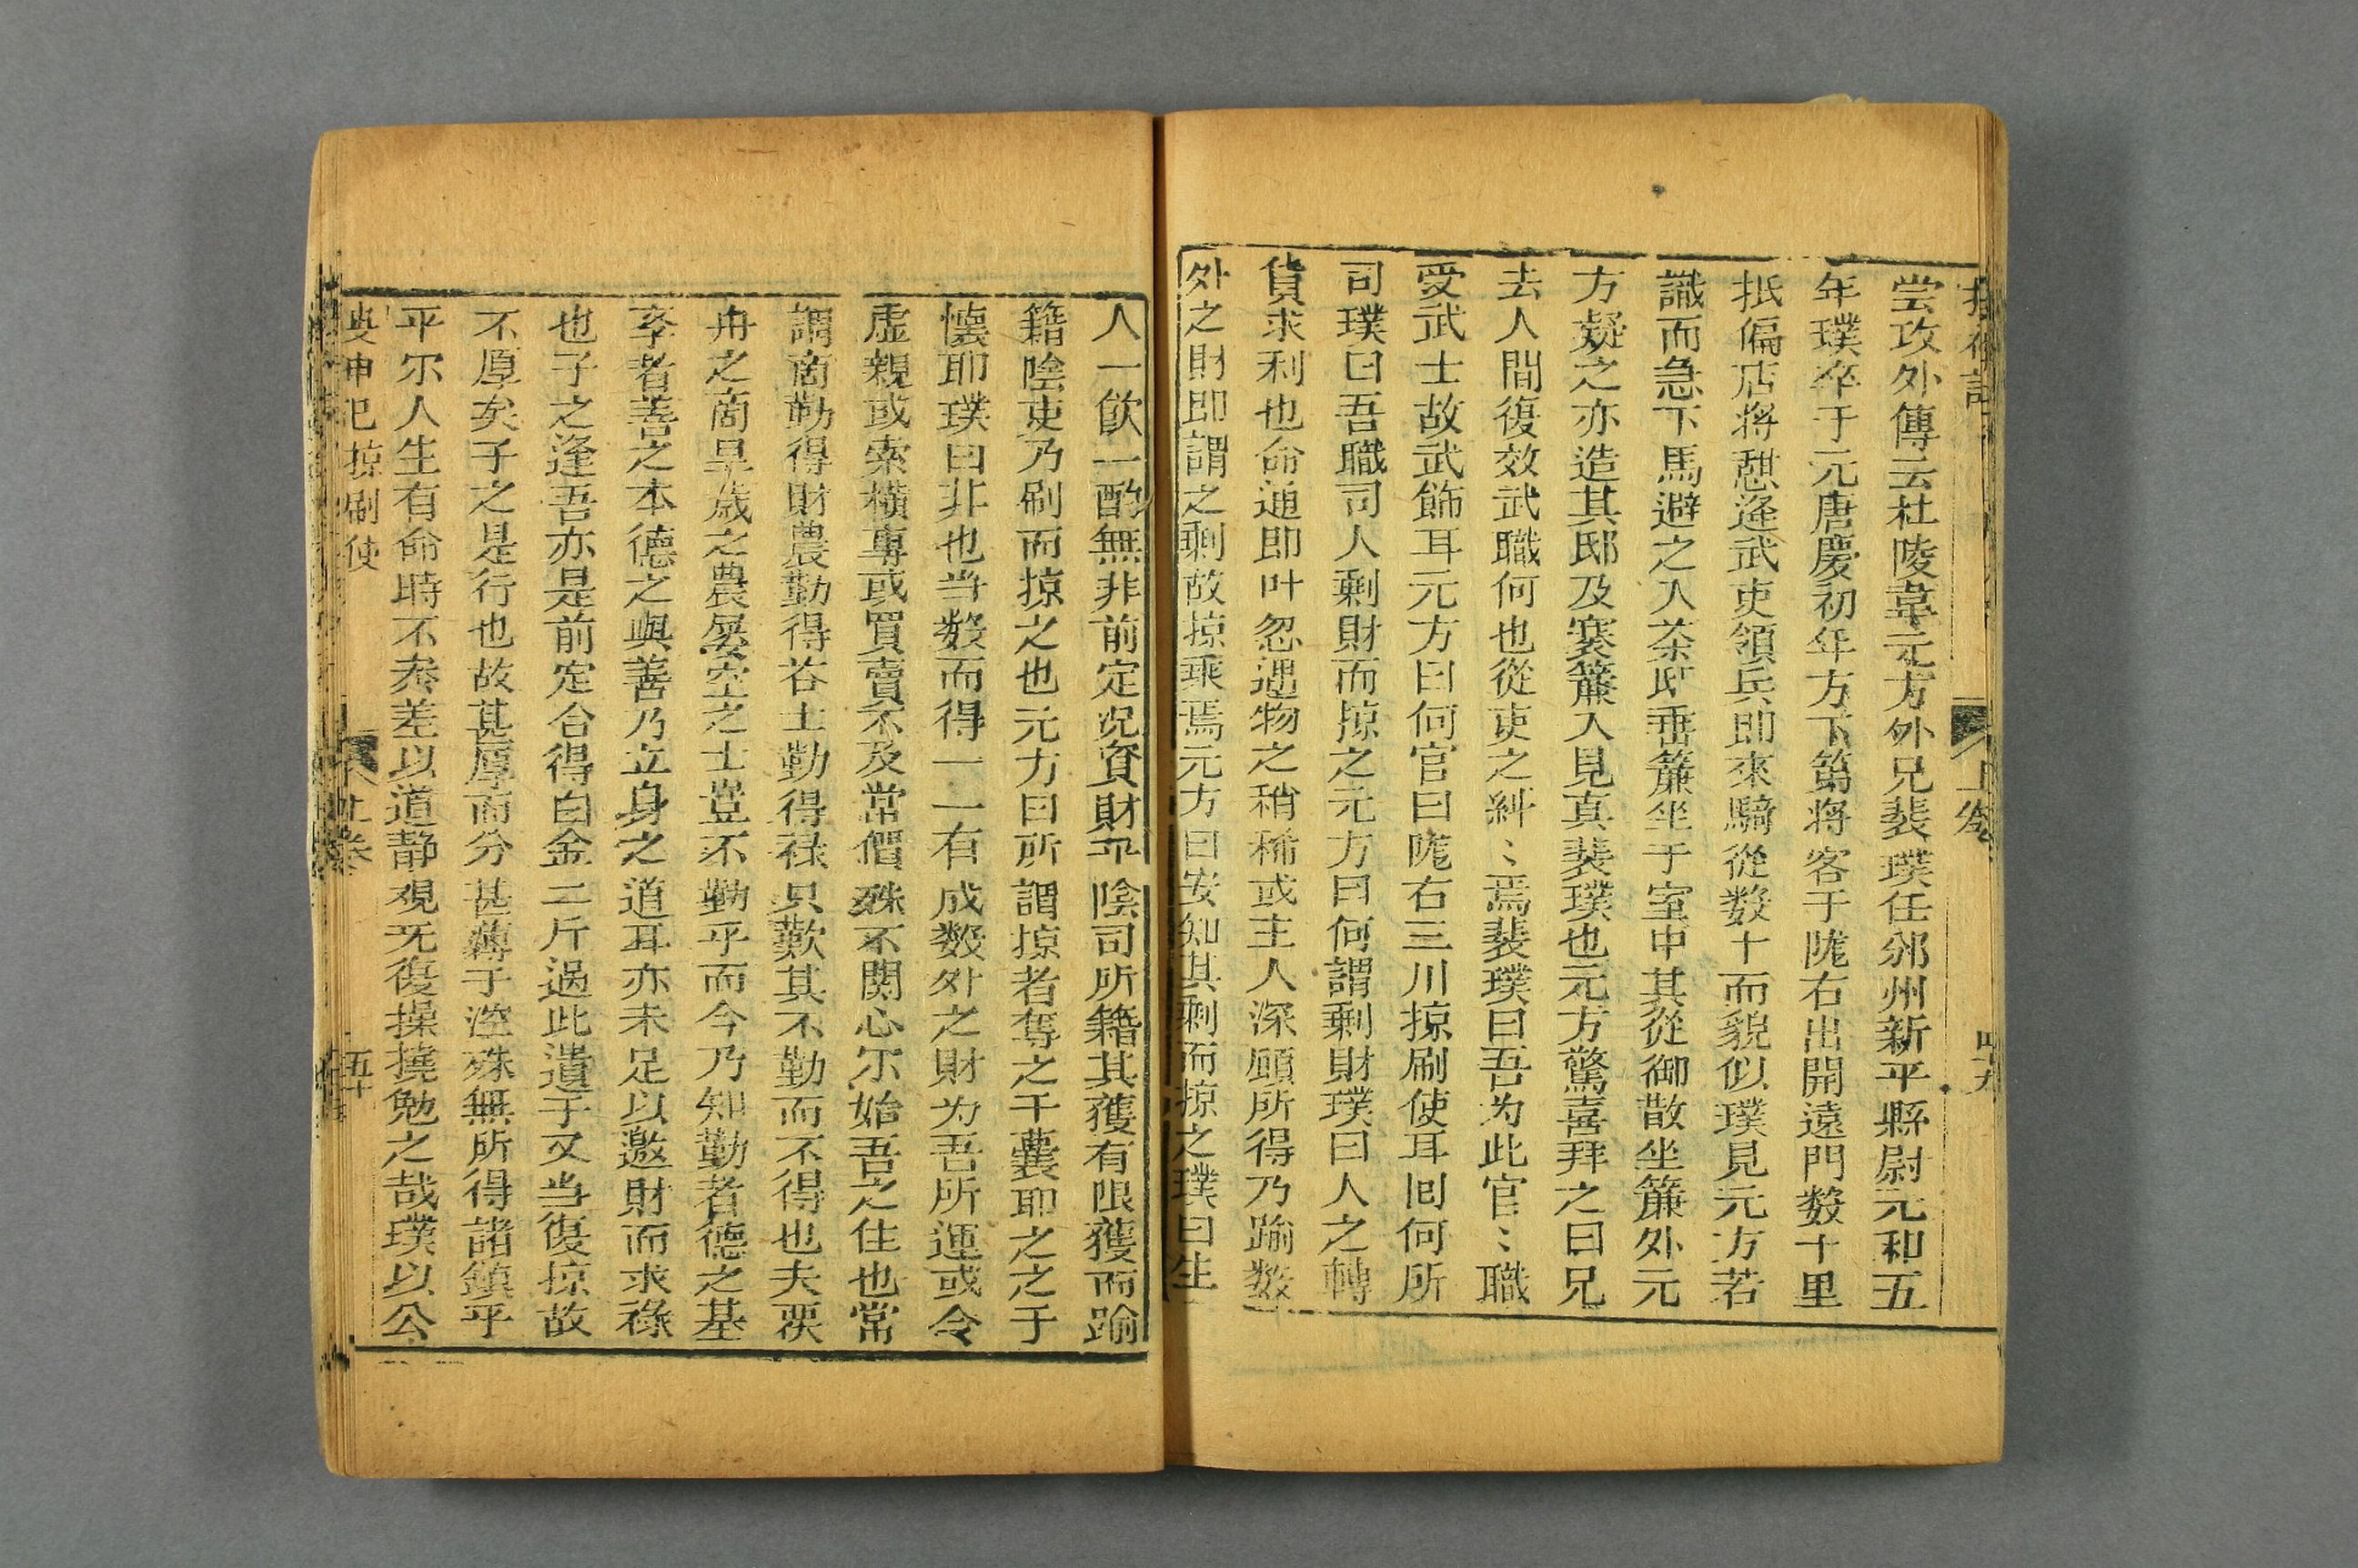 嘗攻外傳云杜陵韋元方外兄裴璞任邠州新平縣尉元和五
年璞卒于元唐慶初年方下第将客于陇右出開遠門数十里
抵偏店将憇逢武吏領兵即來騎從数十而貌似璞見元方若
識而急下馬避之入茶邸垂簾坐于室中其從御散坐簾外元
方疑之亦造其邸及褰簾入見真裴璞也元方驚喜拜之曰兄
去人間復效武職何也從吏之糾〻焉裴璞曰吾为此官〻職
受武士故武飾耳元方曰何官曰陇右三川掠刷使耳囘何所
司璞曰吾職司人剰財而掠之元方曰何謂剰財璞曰人之轉
貨求利也命通即叶忽遇物之稍稀或主人深顧所得乃踰数
外之財即謂之剰故掠乘焉元方曰安知其剰而掠之璞曰生
上卷
四九
人一飲一酌無非前定况資財乎陰司所籍其獲有限獲而踰
籍陰吏乃刷而掠之也元方曰所謂掠者奪之于囊耶之之于
懐耶璞曰非也当数而得一一有成数外之財为吾所運或令
虚親或索横事或買賣不及常價殊不関心尓始吾之住也常
謂商勤得財農勤得谷士勤得禄只歎其不勤而不得也夫覆
舟之商旱歳之農屡空之士豈不勤乎而今乃知勤者德之基
孝者善之本德之與善乃立身之道耳亦未足以邀財而求祿
也子之逢吾亦是前定合得白金二斤過此遺于又当復掠故
不厚矣子之是行也故甚厚而分甚薄于涇殊無所得諸鎮乎
平尓人生有命時不叅差以道静覌无復操撓勉之哉璞以公
掠刷使
上卷
五十